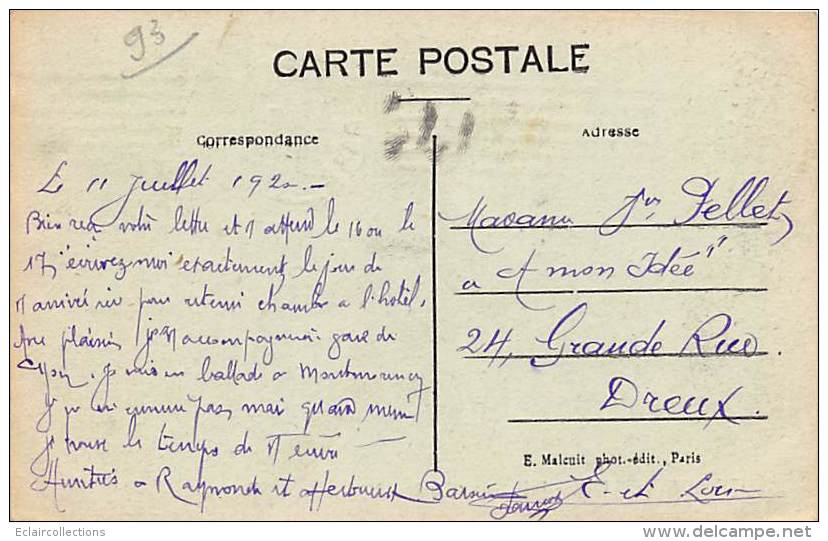 93
CARTE POSTALE
Correspondance
Adresse
Le 11 Juillet 192
Bien reçu votre lettre et t attend le 16 ou le
17, écrivez moi exactement le jour de
arrivée ici pour retenir chambre a l'hotel.
Avec plaisir accompagnerai gare de
Lyon. Je suis en ballade a Montmorency
mais quand meme
Je trouve le temps de
Amitiés a Raymonde et affectueux
Madame Pellet
a "A mon Idée"
24, Grande Rue.
Dreux.
E. Malcuit phot.-édit., Paris
E- et Loir
Eclaircollections
www.delcampe.net